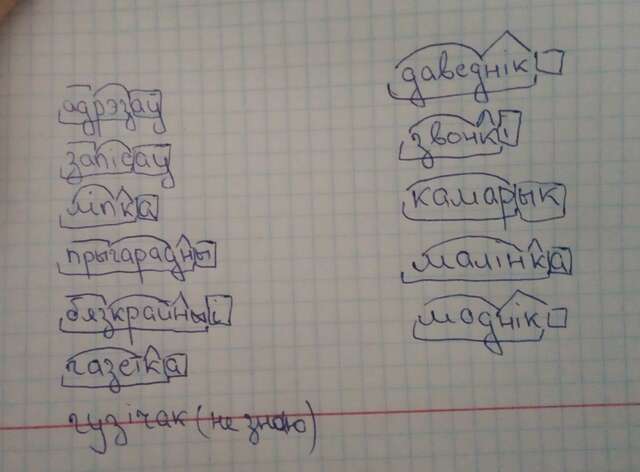 адрэзаў
запісаў
ліпка
прыгарадны
бязкрайныі
газетка
гузічак (не знаю)
даведнік
звонкі
камарык
малінка
моднік